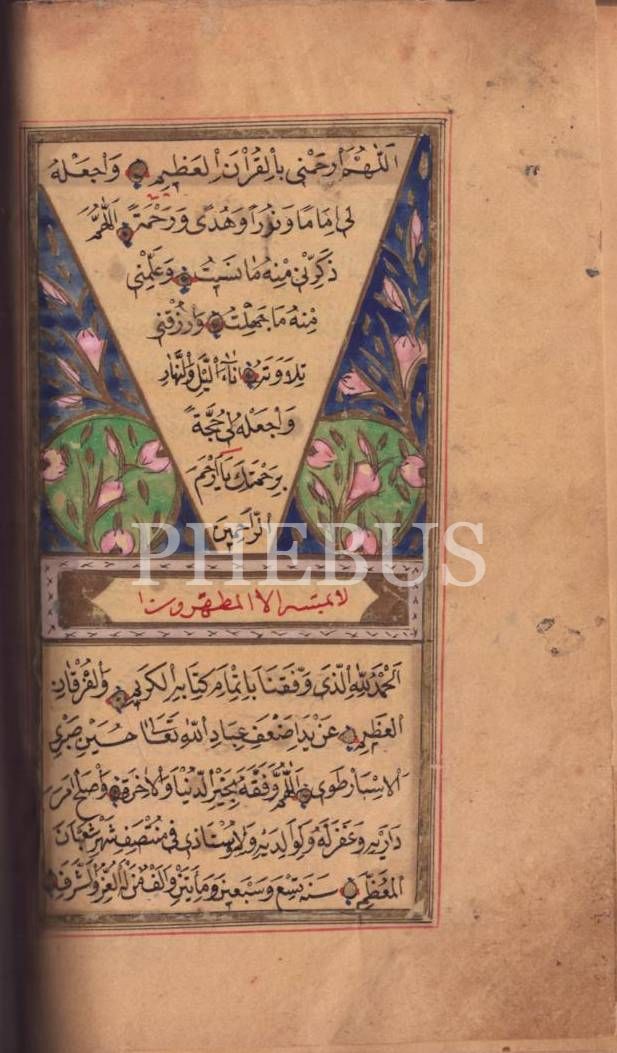 اَللّٰهُمَّ ارْحَمْنِي بِالْقُرْاٰنِ الْعَظِيمِ وَاجْعَلْهُ
لِي اِمَامًا وَنُورًا وَهُدًى وَرَحْمَةً اَللّٰهُمَّ
ذَكِّرْنِي مِنْهُ مَا نَسِيتُ وَعَلِّمْنِي
مِنْهُ مَا جَهِلْتُ وَارْزُقْنِي
تِلَاوَتَهُ اٰنَاءَ الَّيْلِ وَالنَّهَارِ
وَاجْعَلْهُ لِي حُجَّةً
بِرَحْمَتِكَ يَا اَرْحَمَ
الرَّاحِمِينَ
PHEBUS
لا يمسه الا المطهرون
اَلْحَمْدُ لِلّٰهِ الَّذِي وَفَّقَنَا بِاِتْمَامِ كِتَابِهِ الْكَرِيمِ وَالْفُرْقَانِ
الْعَظِيمِ عَنْ يَدِ اَضْعَفِ عِبَادِ اللّٰهِ تَعَالٰى حُسَيْن صَبْرِي
الاسبارطوي اَللّٰهُمَّ وَفِّقْهُ بِخَيْرِ الدُّنْيَا وَالْاٰخِرَةِ وَاَصْلِحْ اَمْرَ
دَارَيْهِ وَغَفَرَ لَهُ وَلِوَالِدَيْهِ وَلِاُسْتَاذِي فِي مُنْتَصَفِ شَهْرِ شَعْبَانَ
الْمُعَظَّمِ سَنَةَ تِسْعٍ وَسَبْعِينَ وَمِائَتَيْنِ وَاَلْفٍ مَنْ لَهُ الْعِزُّ وَالشَّرَفُ